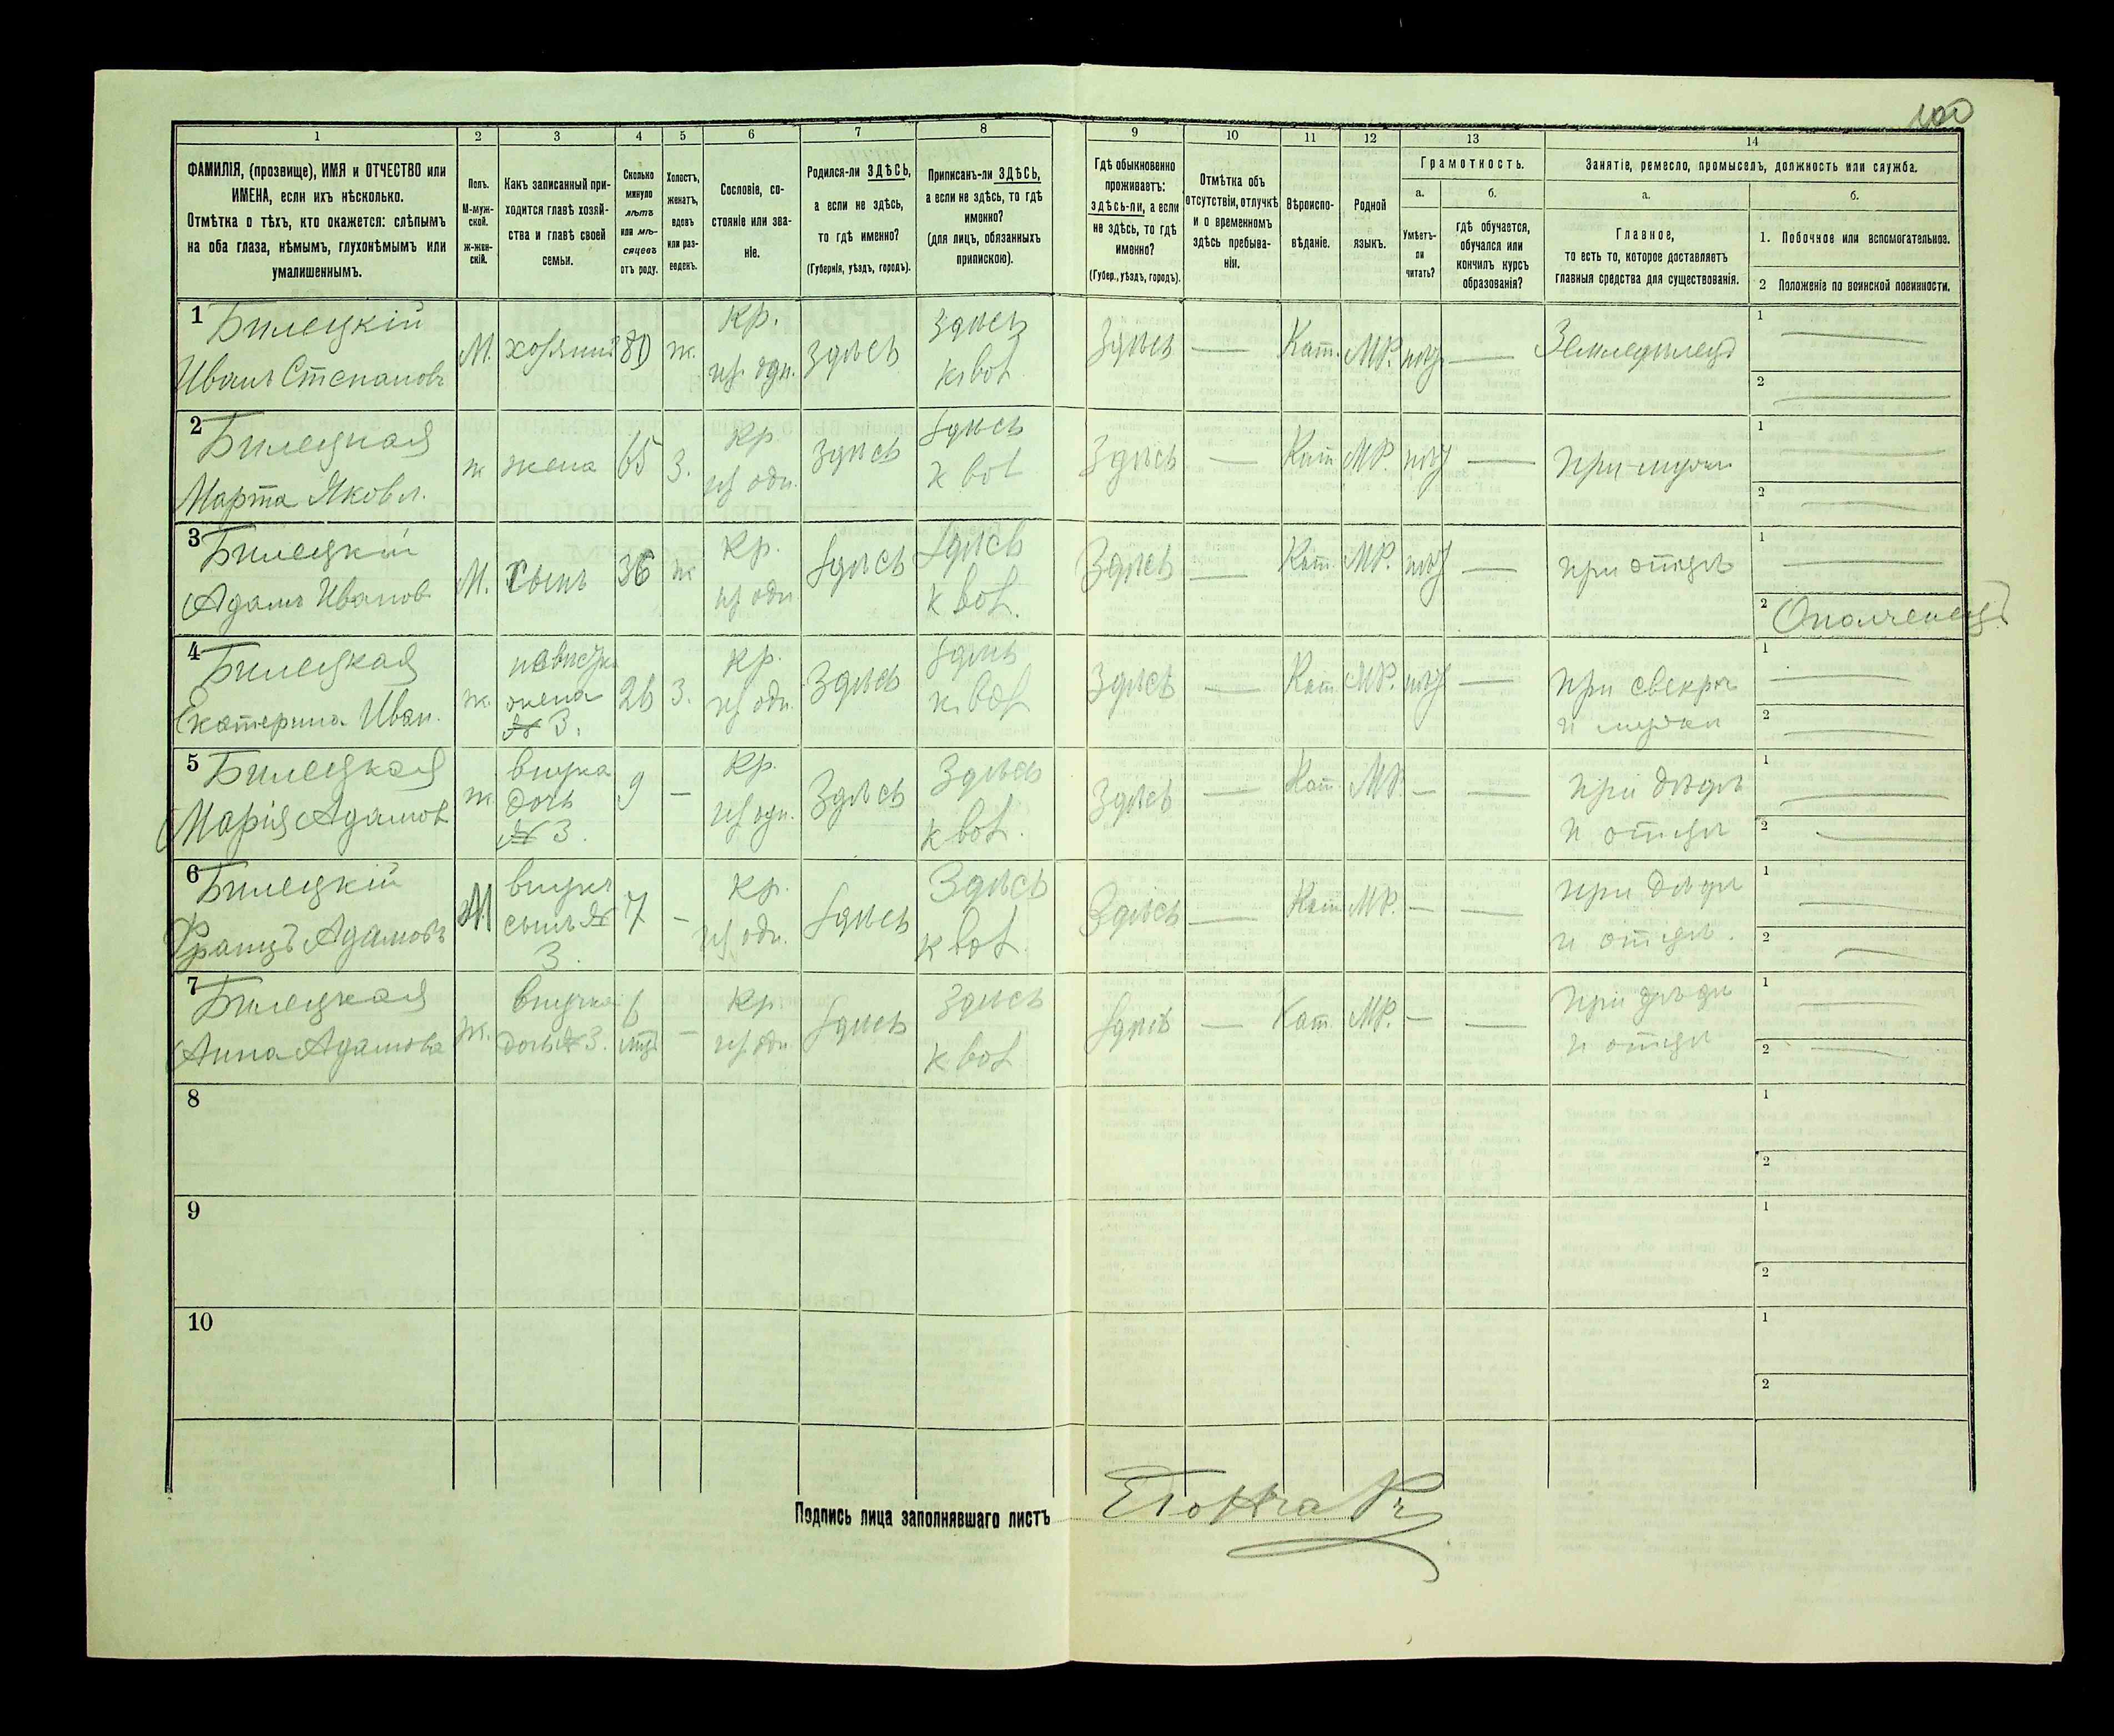 100
1 2 3 4 5 6 7 8 9 10 11 12 13 14
ФАМИЛІЯ, (прозвище), ИМЯ и ОТЧЕСТВО или
ИМЕНА, если ихъ нѣсколько.
Отмѣтка о тѣхъ, кто окажется: слѣпымъ
на оба глаза, нѣмымъ, глухонѣмымъ или
умалишеннымъ.
Полъ.
М-муж-
ской.
ж-жен-
скій.
Какъ записанный при-
ходится главѣ хозяй-
ства и главѣ своей
семьи.
Сколько
минуло
лѣтъ
или мѣ-
сяцевъ
отъ роду.
Холостъ,
женатъ,
вдовъ
или раз-
веденъ.
Сословіе, со-
стояніе или зва-
ніе.
Родился-ли ЗДѢСЬ,
а если не здѣсь,
то гдѣ именно?
(Губернія, уѣздъ, городъ).
Приписанъ-ли ЗДѢСЬ,
а если не здѣсь, то гдѣ
именно?
(для лицъ, обязанныхъ
припискою).
Гдѣ обыкновенно
проживаетъ:
здѣсь-ли, а если
не здѣсь, то гдѣ
именно?
(Губер., уѣздъ, городъ).
Отмѣтка объ
отсутствіи, отлучкѣ
и о временномъ
здѣсь пребыва-
ніи.
Вѣроиспо-
вѣданіе.
Родной
языкъ.
Грамотность.
а.
Умѣетъ-
ли
читать?
б.
гдѣ обучается,
обучался или
кончилъ курсъ
образованія?
Занятіе, ремесло, промыселъ, должность или служба.
а.
Главное,
то есть то, которое доставляетъ
главныя средства для существованія.
б.
1. Побочное или вспомогательное.
2 Положеніе по воинской повинности.
1 Билецкій
Иванъ Степановъ
М. хозяинъ 80 ж.
Кр.
здѣсь
Здѣсь
Здѣсь — Кат. МР. нѣтъ — Земледѣлецъ
1 —
2 —
2 Билецкая
Марта Яковл.
ж жена 65 з.
Кр
здѣсь
здѣсь
Здѣсь — Кат МР. нѣтъ — при мужѣ
1 —
2 —
3 Билецкій
Адамъ Иванов
М. сынъ 36 ж
Кр.
здѣсь
здѣсь
Здѣсь — Кат МР. нѣтъ — при отцѣ
1 —
2 Ополченецъ
4 Билецкая
Екатерина Иван.
ж.
жена
№ 3.
26 з.
Кр.
Здѣсь
здѣсь
Здѣсь — Кат МР. нѣтъ —
при свекрѣ
и мужѣ
1 —
2 —
5 Билецкая
Марія Адамов
ж.
внучка
дочь
№ 3.
9 —
Кр.
Здѣсь
Здѣсь
Здѣсь — Кат МР. — —
При дѣдѣ
и отцѣ
1 —
2 —
6 Билецкій
Францъ Адамовъ
М
внукъ
сынъ №
3.
7 —
Кр.
здѣсь
Здѣсь
Здѣсь — Кат МР. — —
при дѣдѣ
и отцѣ.
1 —
2 —
7 Билецкая
Анна Адамова
ж.
внучка
дочь № 3.
6
мѣс
—
Кр.
здѣсь
Здѣсь
здѣсь — Кат. МР. — —
При дѣдѣ
и отцѣ
1 —
2 —
8
1
2
9
1
2
10
1
2
Подпись лица заполнявшаго листъ